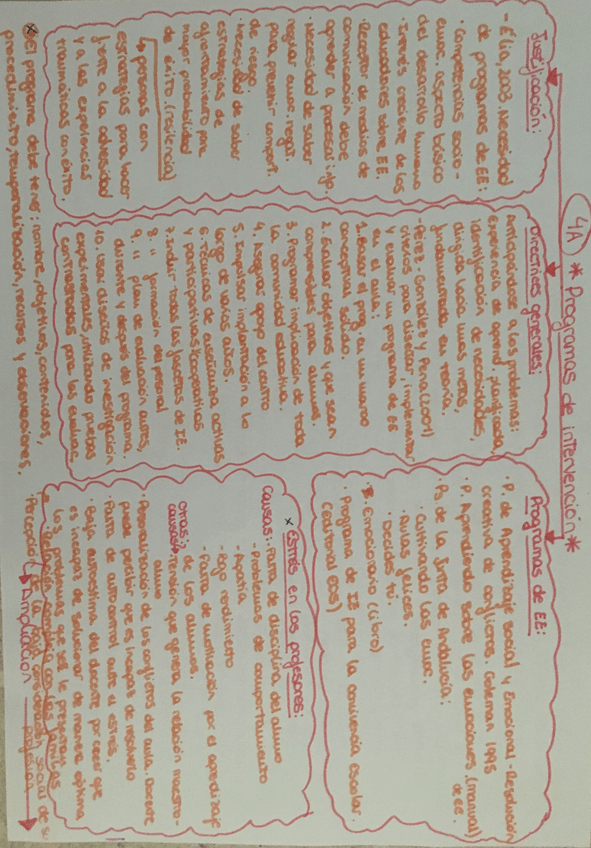 4A * Programas de intervención *
Justificación:
- Élia, 2003. Necesidad
de programas de EE:
· Competencias socio-
emoc. aspecto básico
del desarrollo humano
· Interés creciente de los
educadores sobre EE.
· Receptor de medios de
comunicación debe
aprender a procesar info.
· Necesidad de saber
regular emoc. negat.
para prevenir comport.
de riesgo.
· Necesidad de saber
estrategias de
afrontamiento para
mayor probabilidad
de éxito. (resiliencia)
↳ personas con
estrategias para hacer
frente a la adversidad
y a las experiencias
traumáticas con éxito.
Directrices generales:
Anticipándose a los problemas:
Experiencia de aprend. planificada,
identificación de necesidades,
dirigida hacia unas metas,
fundamentada en teoría.
-Pérez-González y Pena (2011)
criterios para diseñar, implementar
y evaluar un programa de EE
en el aula:
1. Basar el prog. en un marco
conceptual sólido.
2. Evaluar objetivos y que sean
comprensibles para alumnos.
3. Programar implicación de toda
la comunidad educativa.
4. Asegurar apoyo del centro
5. Impulsar implantación a lo
largo de varios años.
6. Técnicas de enseñanza activas
y participativas y cooperativas
7. Incluir todas las facetas de IE.
8. " formación del personal
9. " plan de evaluación antes,
durante y después del programa.
10. Usar diseños de investigación
experimentales, utilizando pruebas
contrastadas para las evaluac.
Programas de EE:
· P. de Aprendizaje social y Emocional - Resolución
creativa de conflictos. Goleman 1995
· P. Aprendiendo sobre las emociones (manual)
de EE.
· Ps de la Junta de Andalucía:
· Cultivando las emoc.
· Aulas felices.
· Decides tú.
· Emocionario (libro)
· Programa de IE para la convivencia escolar.
(Editorial EOS)
* Estrés en los profesores:
Causas: · Falta de disciplina del alumno
- Problemas de comportamiento
- Apatía
- Bajo rendimiento
- Falta de motivación por el aprendizaje
de los alumnos.
Otras causas: Tensión que genera la relación maestro-
alumno
· Personalización de los conflictos del aula. Docente
puede percibir que es incapaz de resolverlo
· Falta de autocontrol ante el estrés.
· Baja autoestima del docente por creer que
es incapaz de solucionar de manera óptima
los problemas que se le presentan.
· Relación complicada con las familias
· Percepción de la baja consideración social de su
profesión
→ Ampliación
* El programa debe tener: nombre, objetivos, contenidos,
procedimiento, temporalización, recursos y observaciones.